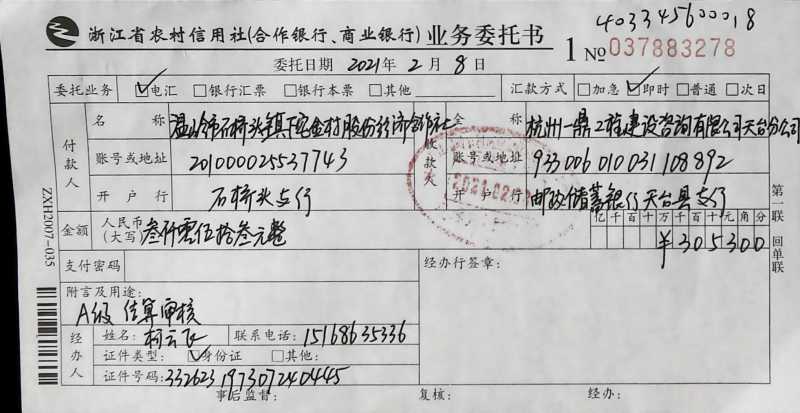 40334560001 8
浙江省农村信用社(合作银行、商业银行) 业务委托书
1 № 037883278
委托日期 2021年 2月 8日
委托业务 ☑电汇 □银行汇票 □银行本票 □其他 汇款方式 □加急 ☑即时 □普通 □次日
付款人 名称 温岭市石桥头镇下宅金村股份经济合作社 收款人 全称 杭州一鼎工程建设咨询有限公司天台分公司
账号或地址 201000025537743 账号或地址 933006010031108892
开户行 石桥头支行 开户行 邮政储蓄银行天台县支行
金额 人民币(大写) 叁仟零伍拾叁元整 亿千百十万千百十元角分 ¥305300
支付密码 经办行签章:
附言及用途:
A级 结算审核
经办人 姓名: 柯云飞 联系电话: 15168635336
证件类型: ☑身份证 □其他:
证件号码: 332623197307240445
事后监督: 复核: 经办:
ZXH2007-035
第一联 回单联